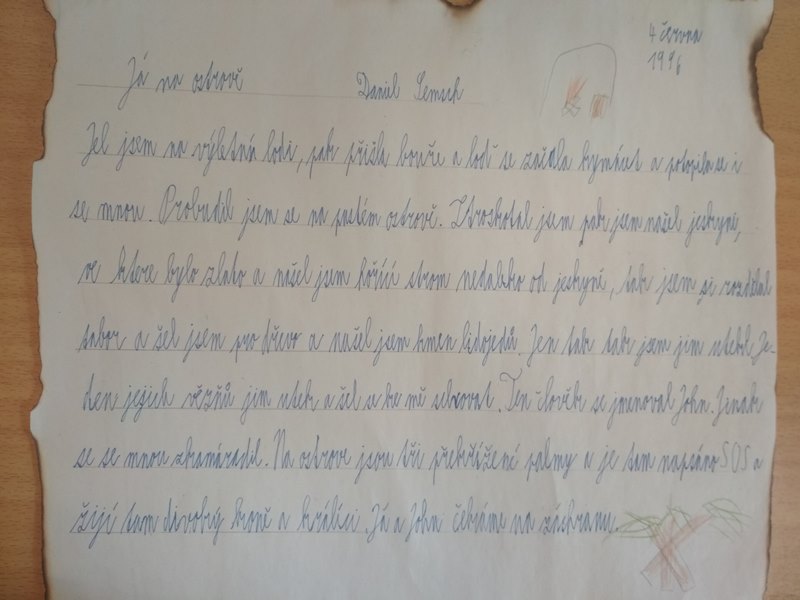 4 června
1996
Já na ostrově Daniel
Jel jsem na výletní lodi, pak přišla bouře a loď se začala kymácet a potopila se i
se mnou. Probudil jsem se na pustém ostrově. Ztroskotal jsem pak jsem našel jeskyni,
ve ktere bylo zlato a našel jsem hořící strom nedaleko od jeskyně, tak jsem si rozdělal
tabor a šel jsem pro dřevo a našel jsem kmen lidojedů. Jen tak tak jsem jim utekl. Je-
den jejich vězňů jim utek a šel se ke mě schovat. Ten člověk se jmenoval John. Jinak
se se mnou zkamarádil. Na ostrove jsou tři překřížené palmy a je tam napsáno SOS a
žijí tam divoký koně a králíci. Já a John čekáme na záchranu.